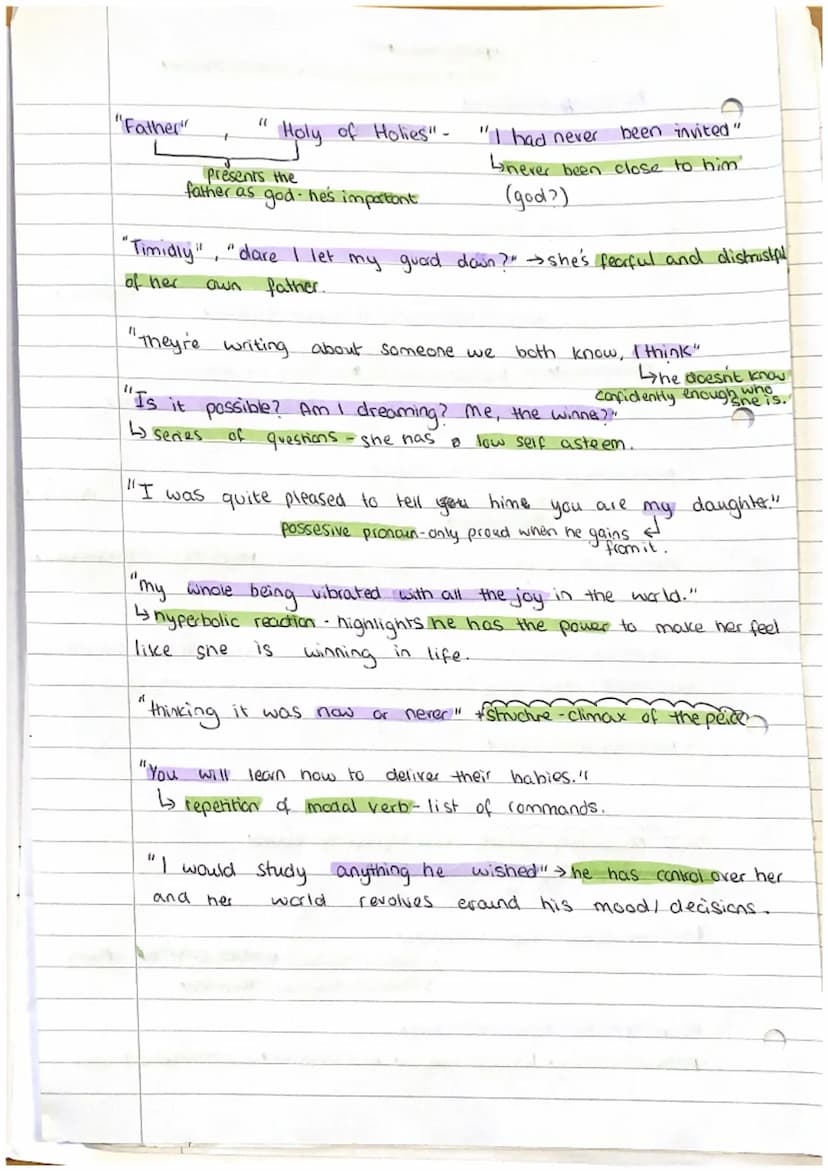 "Father" , " Holy of Holies" - "I had never been invited"
presents the
father as god - he's important
↳never been close to him
(god?)
"Timidly" , "dare I let my guard down?" → she's fearful and distrustful
of her own father.
"They're writing about someone we both know, I think"
↳he doesn't know
confidently enough who
she is.
"Is it possible? Am I dreaming? Me, the winner?"
↳ series of questions - she has a low self asteem.
"I was quite pleased to tell hime you are my daughter."
possesive pronoun - only proud when he gains
from it.
"my whole being vibrated with all the joy in the world."
↳ hyperbolic reaction - highlights he has the power to make her feel
like she is winning in life.
"thinking it was now or never" + structure - climax of the peice
"You will learn how to deliver their babies."
↳ repetition of modal verb - list of commands.
"I would study anything he wished" → he has control over her
and her world revolves eround his mood/decisions.